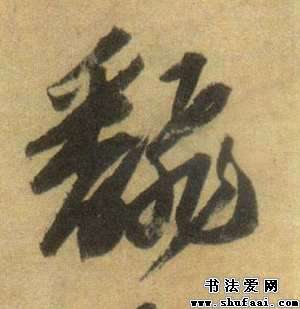 飜
书法爱网
www.shufaai.com